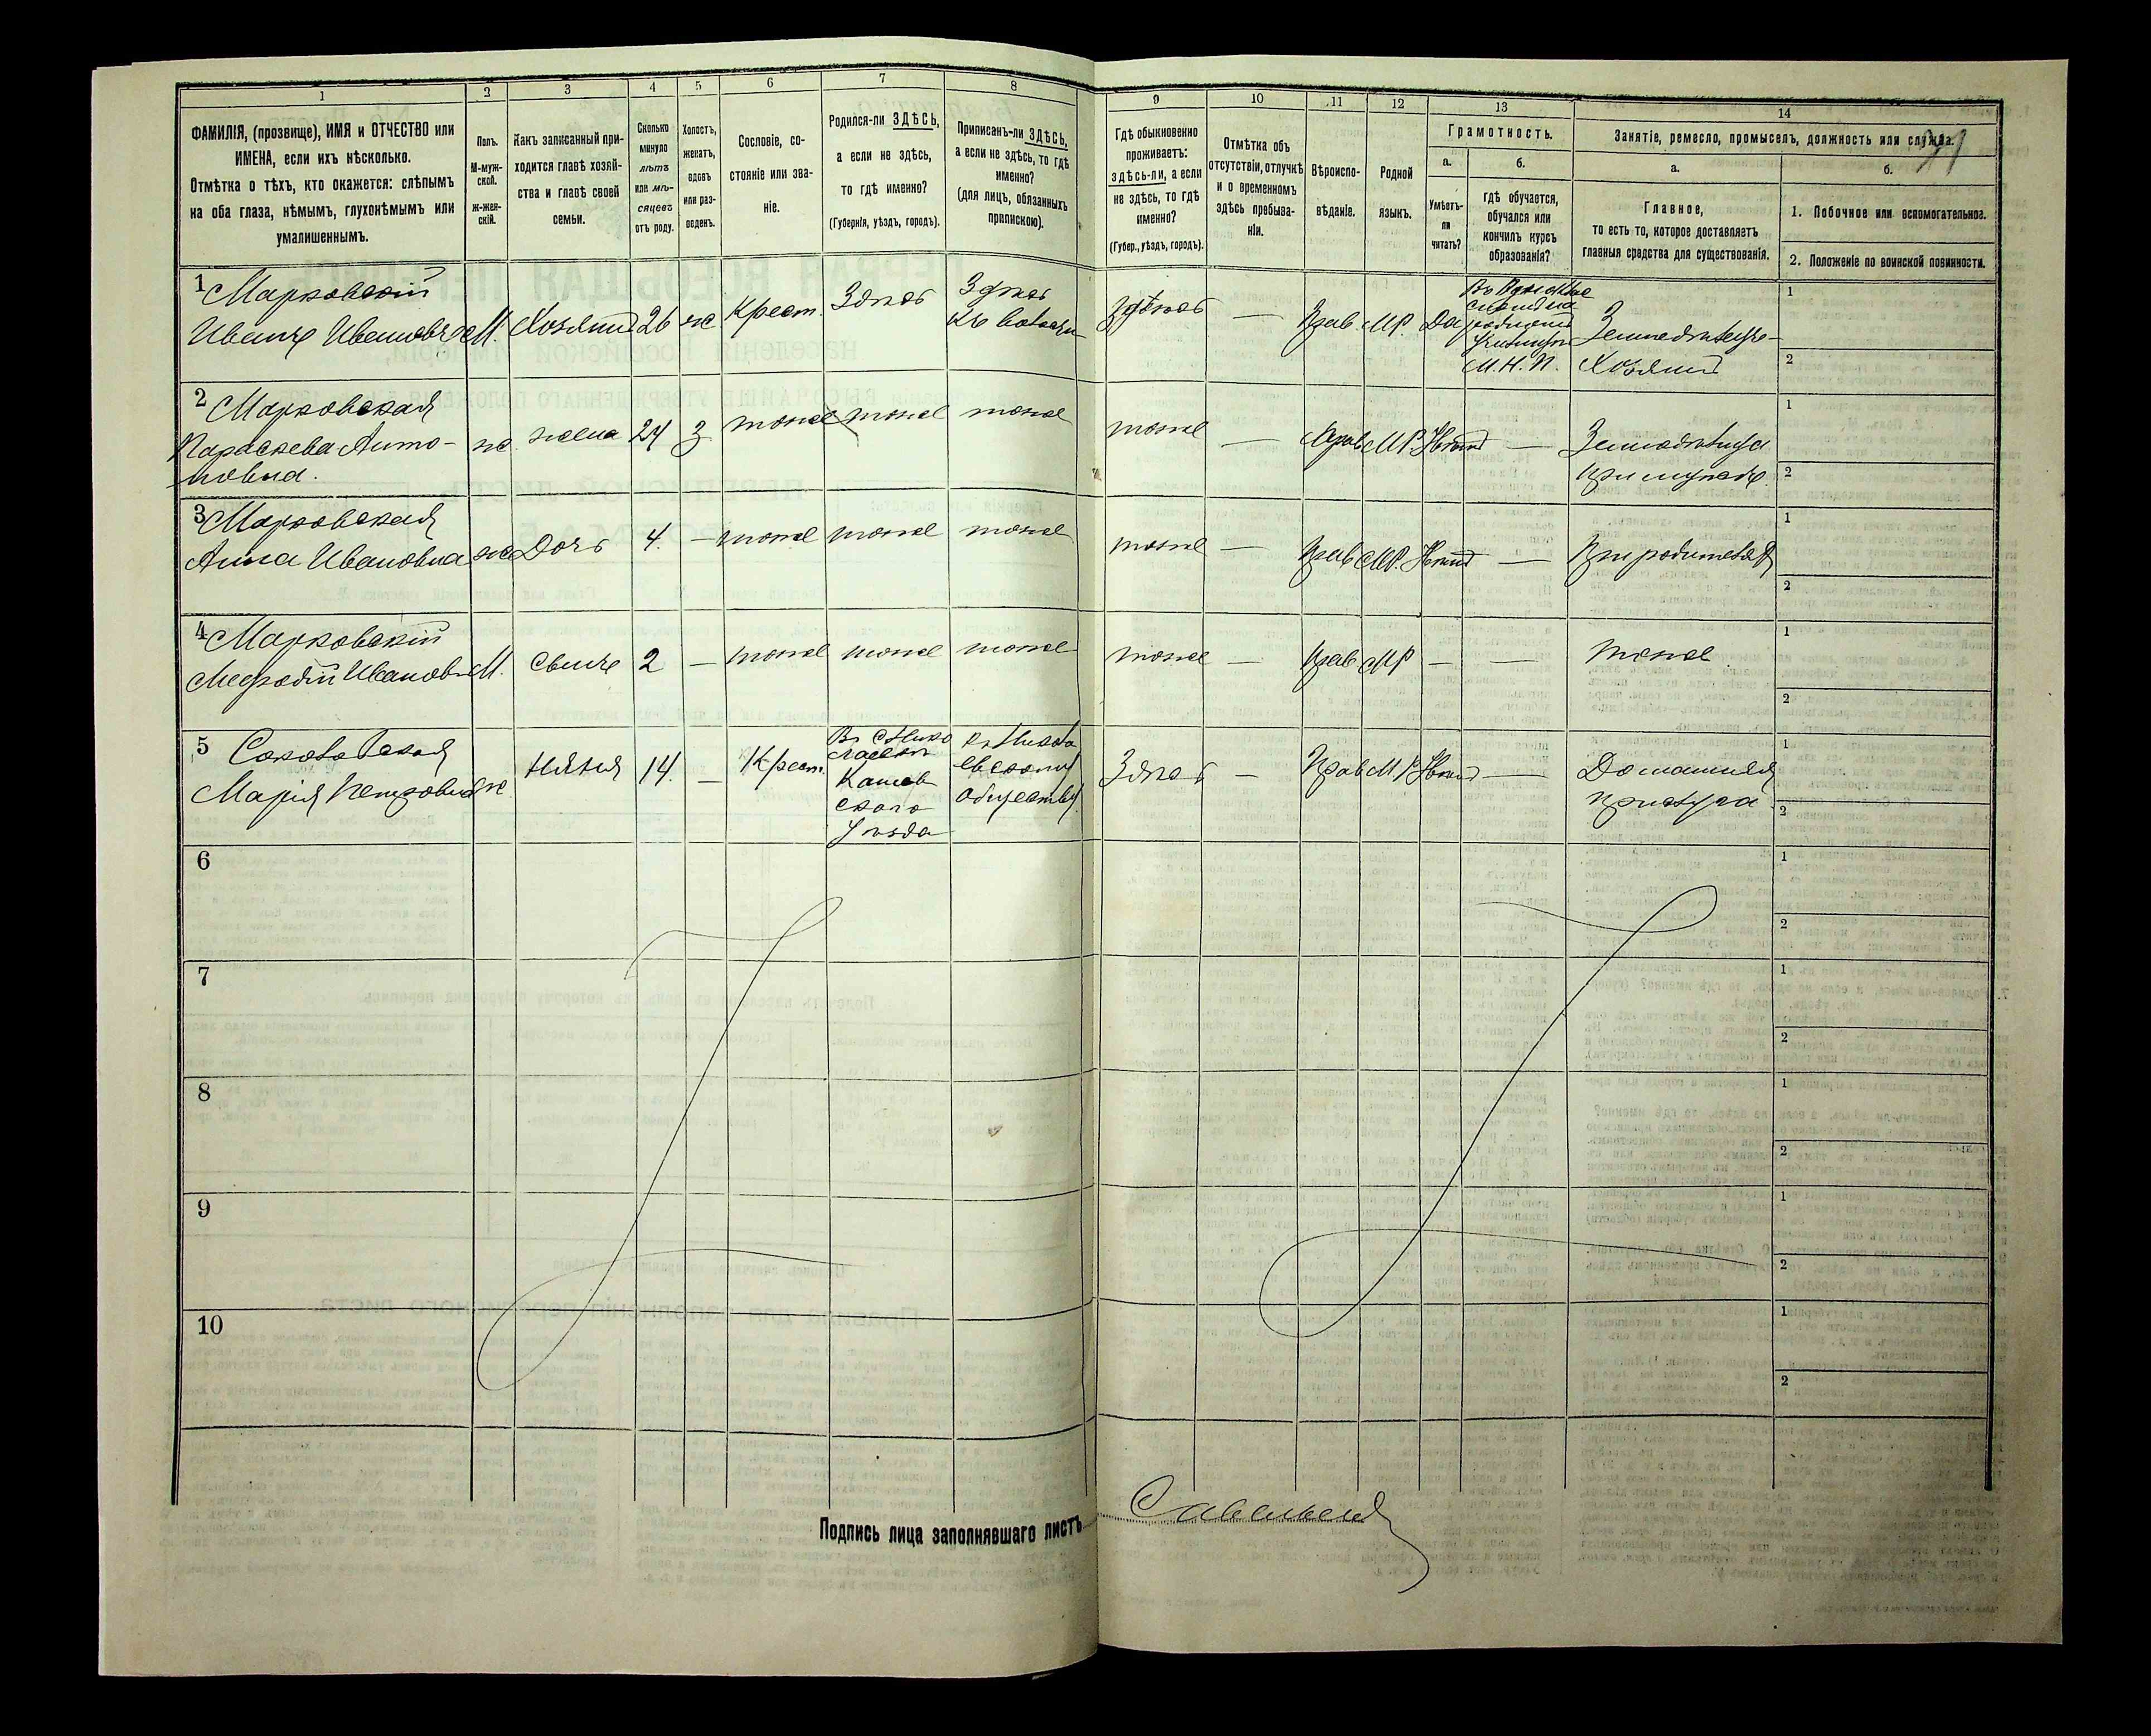 1 2 3 4 5 6 7 8 9 10 11 12 13 14
ФАМИЛІЯ, (прозвище), ИМЯ и ОТЧЕСТВО или
ИМЕНА, если ихъ нѣсколько.
Отмѣтка о тѣхъ, кто окажется: слѣпымъ
на оба глаза, нѣмымъ, глухонѣмымъ или
умалишеннымъ.
Полъ.
М-муж-
ской.
Ж-жен-
скій.
Какъ записанный при-
ходится главѣ хозяй-
ства и главѣ своей
семьи.
Сколько
минуло
лѣтъ
или мѣ-
сяцевъ
отъ роду.
Холостъ,
женатъ,
вдовъ
или раз-
веденъ.
Сословіе, со-
стояніе или зва-
ніе.
Родился-ли ЗДѢСЬ,
а если не здѣсь,
то гдѣ именно?
(Губернія, уѣздъ, городъ).
Приписанъ-ли ЗДѢСЬ,
а если не здѣсь, то гдѣ
именно?
(для лицъ, обязанныхъ
припискою).
Гдѣ обыкновенно
проживаетъ:
здѣсь-ли, а если
не здѣсь, то гдѣ
именно?
(Губер., уѣздъ, городъ).
Отмѣтка объ
отсутствіи, отлучкѣ
и о временномъ
здѣсь пребыва-
ніи.
Вѣроиспо-
вѣданіе.
Родной
языкъ.
Грамотность.
а.
Умѣетъ-
ли
читать?
б.
гдѣ обучается,
обучался или
кончилъ курсъ
образованія?
Занятіе, ремесло, промыселъ, должность или служба.
а.
Главное,
то есть то, которое доставляетъ
главныя средства для существованія.
б.
1. Побочное или вспомогательное.
2. Положеніе по воинской повинности.
1 Марковскій
Иванъ Ивановъ М. Хозяинъ 26 ж Крест. Здѣсь Здѣсь
Здѣсь — Прав МР Да
М. Н. П.
Хозяинъ
1
2
2 Марковская
Параскева Анто-
новна. ж. жена 24 З тоже тоже тоже тоже — Прав МР Нѣтъ —
1
2
3 Марковская
Анна Ивановна ж Дочь 4. — тоже тоже тоже тоже — Прав МР. Нѣтъ — При родителяхъ
1
2
4 Марковскій
Мефодій Иванов М. Сынъ 2 — тоже тоже тоже тоже — Прав МР — — тоже
1
2
5
Марія Петровна ж Няня 14. — Крест.
уѣзда
обществу
Здѣсь — Прав МР Нѣтъ — Домашняя
прислуга
1
2
6 1
2
7 1
2
8 1
2
9 1
2
10 1
2
Подпись лица заполнявшаго листъ